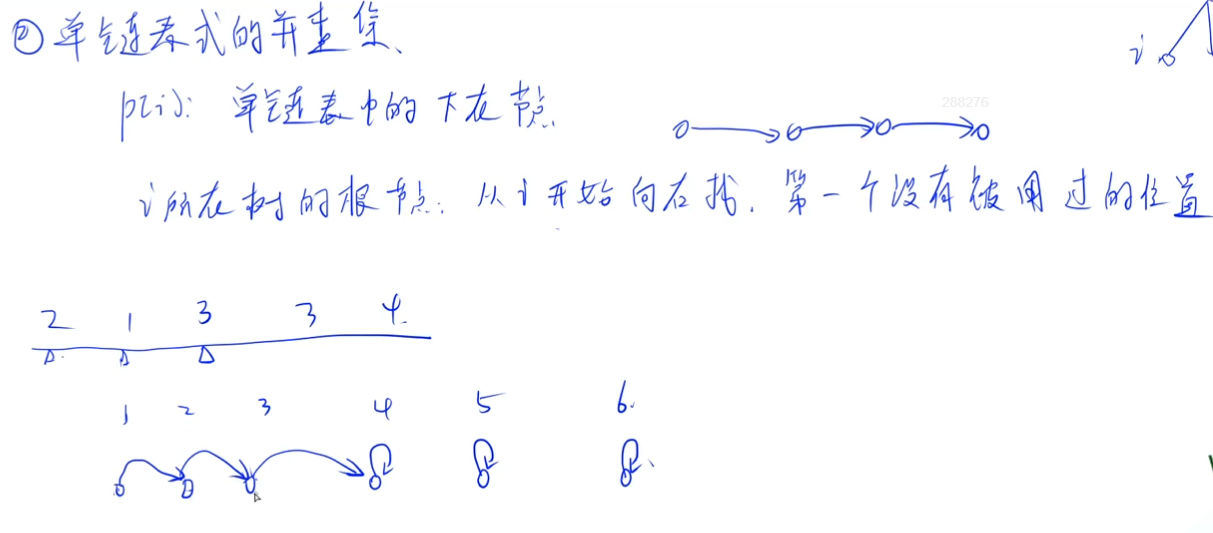 ② 单链表式的并查集、
i
p(i): 单链表中的下在节点.
288276
i所在树的根节点: 从i开始向右找. 第一个没有被用过的位置
2 1 3 3 4
1 2 3 4 5 6.